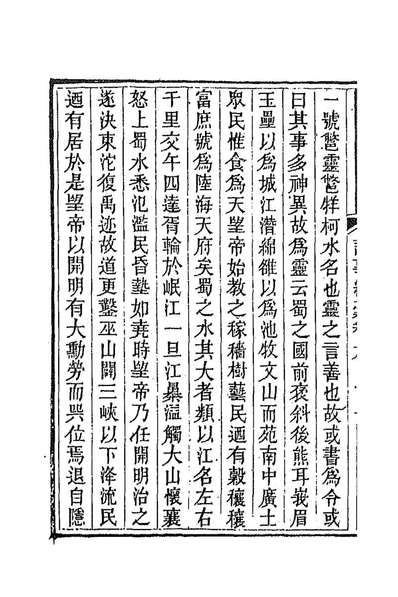 一號鼈靈鼈牂柯水名也靈之言善也故或書爲令或
曰其事多神異故爲靈云蜀之國前褒斜後熊耳峩眉
玉壘以爲城江潛綿雒以爲池牧文山而苑南中廣土
衆民惟食爲天朢帝始敎之稼穡樹藝民迺有穀穰穰
富庶號爲陸海天府矣蜀之水其大者類以江名左右
千里交午四達胥輸於岷江一旦江暴溢觸大山懷襄
怒上蜀水悉氾濫民昏墊如堯時朢帝乃任開明治之
遂決東沱復禹迹故道更鑿巫山闢三峽以下洚流民
迺有居於是朢帝以開明有大勳勞而巽位焉退自隱